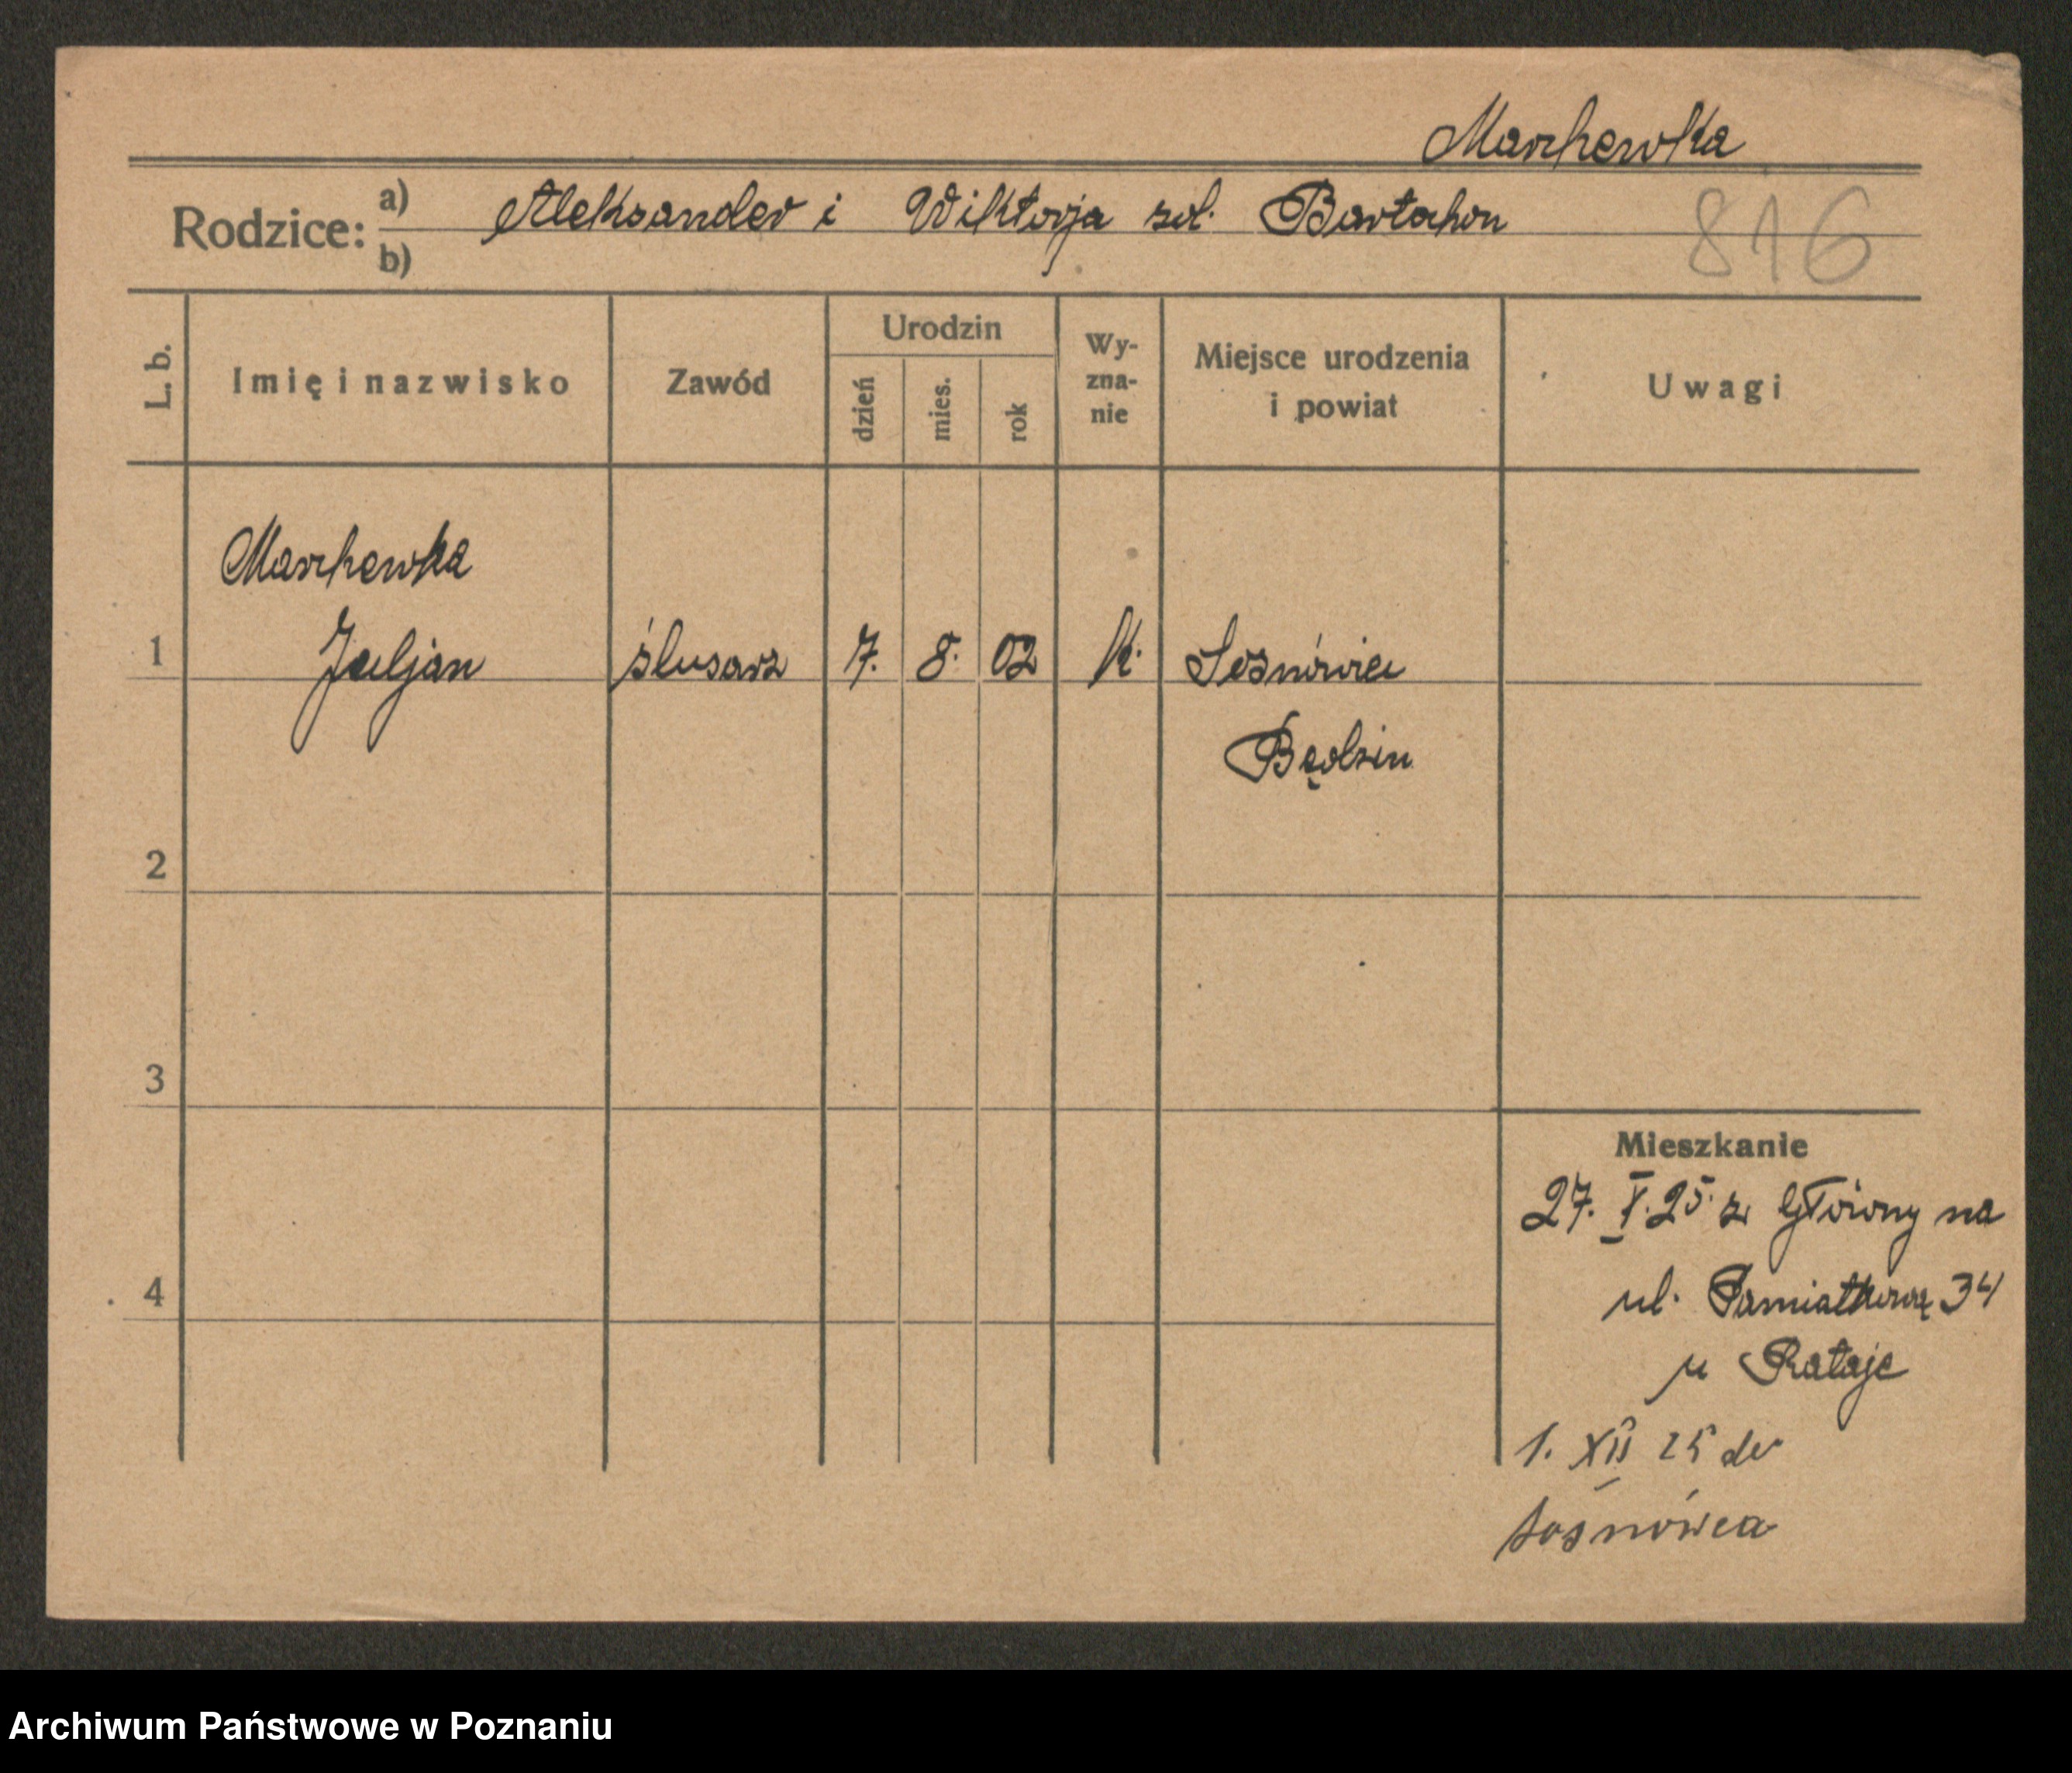 Marchewka
Rodzice: a) Aleksander i Wiktorja zd. Bartochon
b)
816
L. b.
Imię i nazwisko
Zawód
Urodzin
dzień
mies.
rok
Wy-
zna-
nie
Miejsce urodzenia
i powiat
Uwagi
Marchewka
1 Juljan ślusarz 7. 8. 02 k. Sosnówiec
Będzin
2
3
4
Mieszkanie
27. X. 25. z Główny na
ul. Pamiątkową 34
u Rataje
1. XII 25 do
Sosnówca
Archiwum Państwowe w Poznaniu